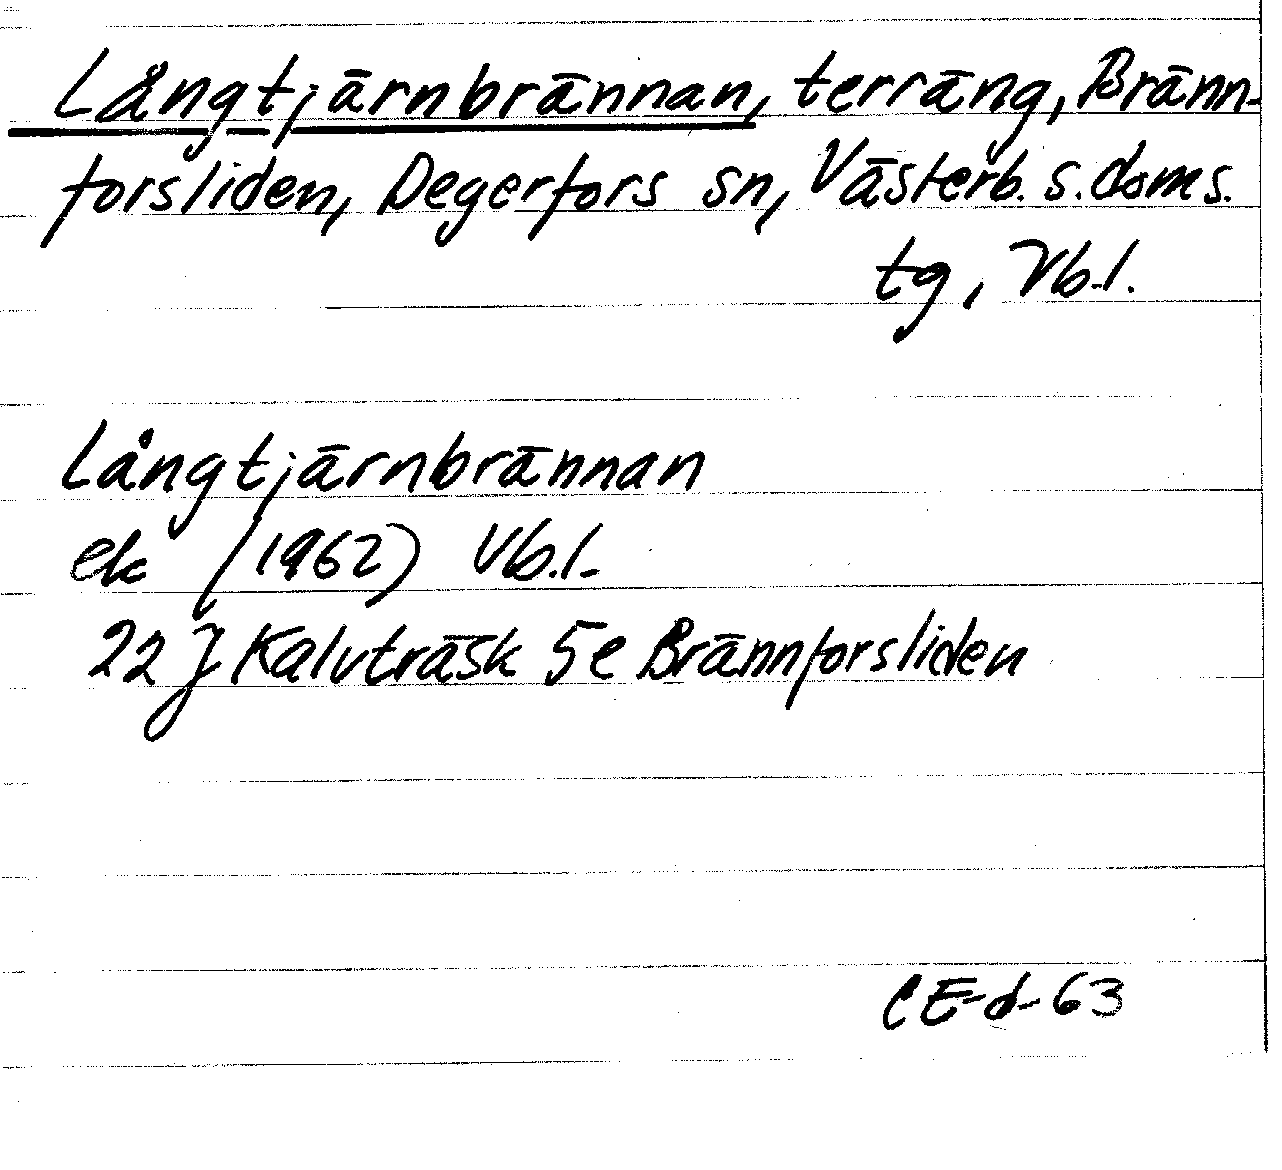 Långtjärnbrännan, terräng, Bränn-
forsliden, Degerfors sn, Västerb. s. doms.
tg, Vb.l.
Långtjärnbrännan
ek (1962) Vb.l.
22 J Kalvträsk 5e Brännforsliden
CE-d-63